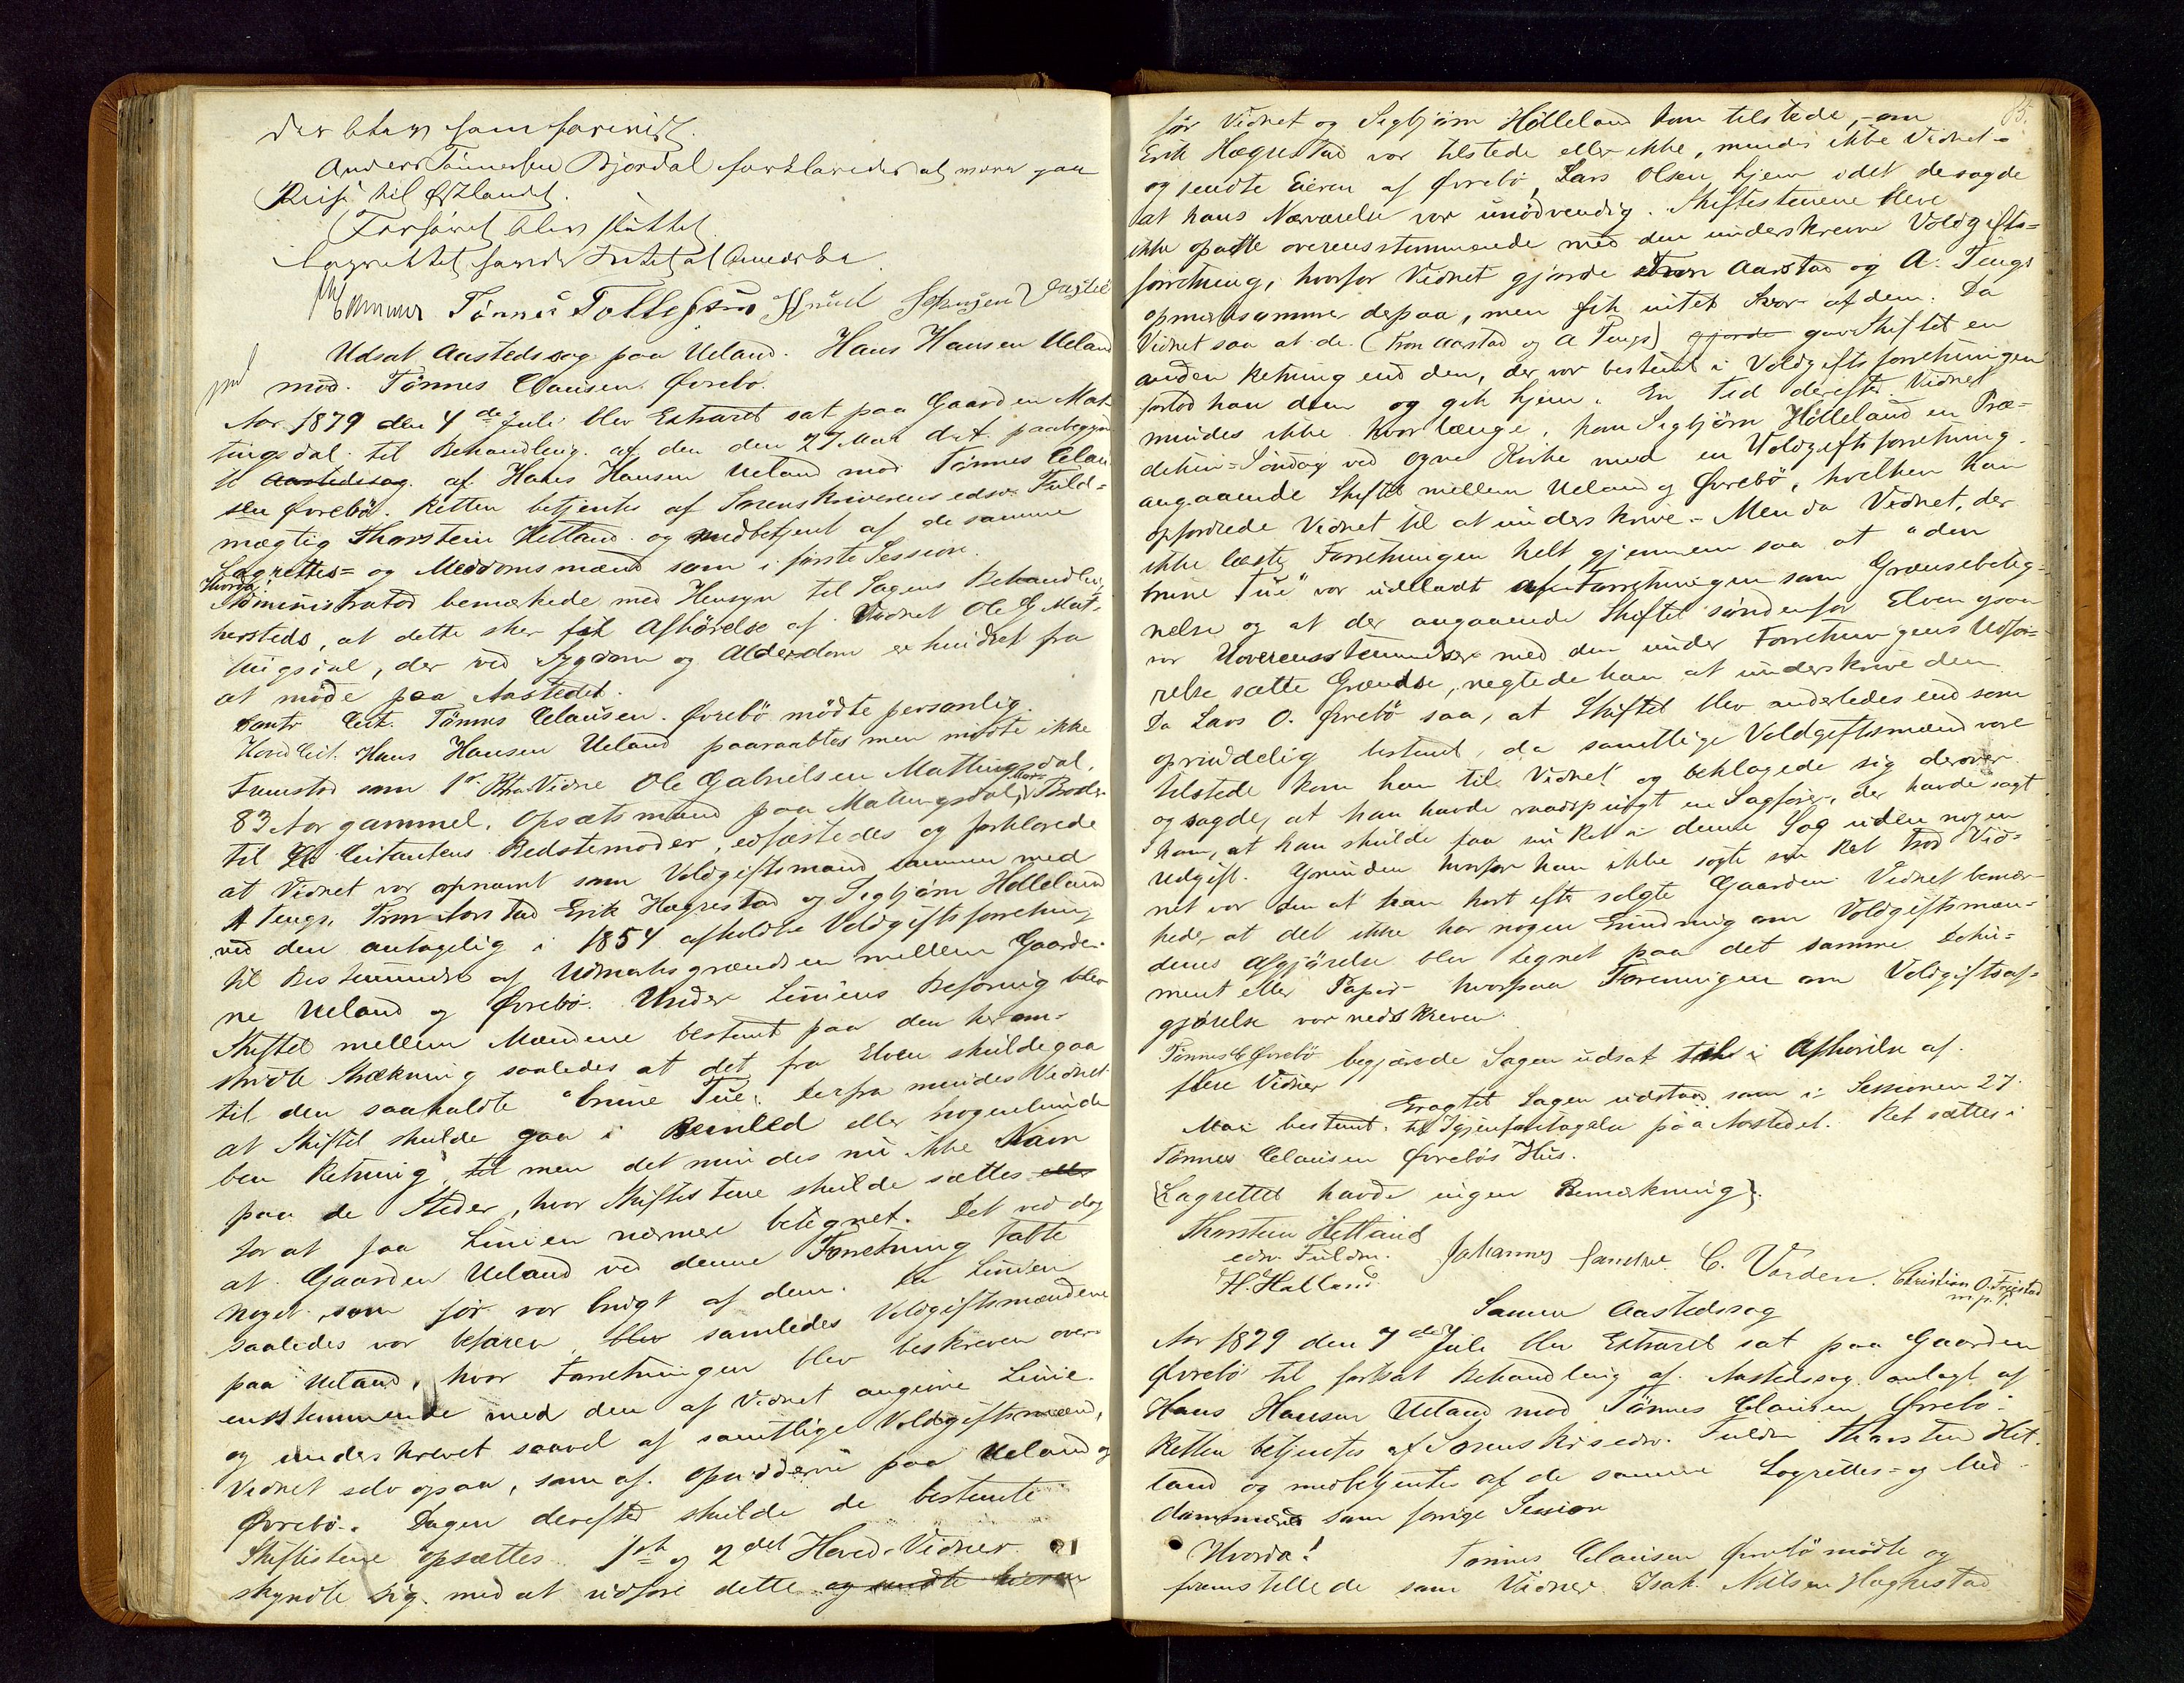 der blev fremført.
Anders Tønnessen Bjordal forklarede at være paa
Reise til Østlandet.
Forhøret blev sluttet.
Lagrettet havde Intet at anmærke.
Tønnes Tollefsen Knud
Udsat Aastedssag paa Ueland. Hans Hansen Ueland
mod. Tönnes Clausen Övrebö.
Aar 1879 den 4de Juli blev Extraret sat paa Gaarden Mat-
tingsdal til Behandling af den den 27 Mai d.A. paabegyn
te Aastedssag af Hans Hansen Ueland mod Tönnes Clau
sen Övrebö. Retten betjentes af Sorenskriverens edsv. Fuld=
mægtig Thorstein Hetland og medbetjent af de samme
Lagrettes= og Meddomsmænd som i første Session.
Hvorda:
Administrator bemærkede med Hensyn til Sagens Behandling
hersteds, at dette sker for Afhörelse af Vidnet Ole G Mat-
tingsdal, der ved Sygdom og Alderdom er hindret fra
at möde paa Aastedet.
Contr Cit. Tönnes Clausen Övrebö mödte personlig.
Hovedcit. Hans Hansen Ueland paaraabtes men mödte ikke
Fremstod som 1ste Vidne Ole Gabrielsen Mattingsdal,
83 Aar gammel, Opsætsmand paa Mattingsdal, Broder
til Citantens Bedstemoder, edfæstedes og forklarede
at Vidnet var opnævnt som Voldgiftsmand sammen med
A Tengs, Tron Aarstad Erik Hægrestad og Sigbjørn Hölleland
ved den antagelig i 1854 afholdte Voldgiftsforretning
til Bestemmelse af Udmarksgrændsen mellem Gaarde-
ne Ueland og Övrebö. Under Liniens Befaring blev
Skiftet mellem Mændene bestemt paa den her om-
stridte Strækning saaledes at det fra Elven skulde gaa
til den saakaldte "brune Tue". Derfra mindes Vidnet
at Skiftet skulde gaa i Beenled eller nogenlunde
ben Retning, til men det mindes nu ikke Navn
paa de Steder, hvor Skiftestene skulde sættes eller
for at faa Linien nærmere betegnet. Det ved dog
at Gaarden Ueland ved denne Forretning tabte
noget, som för var brugt af dem. Da Linien
saaledes var befaren, blev samledes Voldgiftsmændene
paa Ueland, hvor Forretningen blev beskreven over-
ensstemmende med den af Vidnet angivne Linie.
og underskrevet saavel af samtlige Voldgiftsmænd,
Vidnet selv ogsaa, som af Opsidderne paa Ueland og
Övrebö. Dagen derefter skulde de bestemte
Skiftestene opsættes. 1ste og 2det Hoved-Vidner
skyndte sig med at udföre dette og sendte hjem
85.
för Vidnet og Sigbjørn Hölleland kom tilstede, - om
Erik Hægrestad var tilstede eller ikke, mindes ikke Vidnet -
og sendte Eieren af Övrebö, Lars Olsen hjem idet de sagde
at hans Nærværelse var unödvendig. Skiftestenene bleve
ikke opsatte overensstemmende med den underskrevne Voldgifts=
forretning, hvorfor Vidnet gjorde Tron Aarstad og A. Tengs
opmærksomme derpaa, men fik intet Svar af dem. Da
Vidnet saa at de (Tron Aarstad og A Tengs) gjorde gave Skiftet en
anden Retning end den, der var bestemt i Voldgiftsforretningen
forlod han dem og gik hjem. En Tid derefter Vidnet
mindes ikke hvorlænge, kom Sigbjørn Hölleland en Præ-
diken=Söndag ved Ogne Kirke med en Voldgiftsforretning
angaaende Skiftet mellem Ueland og Övrebö, hvilken han
opfordrede Vidnet til at underskrive. - Men da Vidnet, der
ikke læste Forretningen helt gjennem saa at "den
brune Tue" var udeladt af Forretningen som Grænsebeteg-
nelse og at der angaaende Skiftet söndenfor Elven ogsaa
var Uoverensstemmelse med den under Forretningens Udfö-
relse satte Grændse, negtede han at underskrive den
Da Lars O. Övrebö saa, at Skiftet blev anderledes end som
oprindelig bestemt, da samtlige Voldgiftsmænd vare
tilstede kom han til Vidnet og beklagede sig derover
og sagde, at han havde raadspurgt en Sagförer, der havde sagt
ham, at han skulde faa sin Ret i denne Sag uden nogen
Udgift. Grunden hvorfor han ikke sögte sin Ret tror Vid-
net var den at han kort efter solgte Gaarden. Vidnet bemær-
kede, at det ikke har nogen Erindring om Voldgiftsmæn-
denes Afgjörelse blev tegnet paa det samme Doku-
ment eller Papir hvorpaa Foreningen om Voldgiftsaf-
gjörelse var nedskreven.
Tönnes C Övrebö begjærede Sagen udsat til Afhörelse af
flere Vidner
Eragtet Sagen udstaar som i Sessionen 27
Mai bestemt til Igjenforetagelse paa Aastedet. Ret sættes i
Tönnes Clausen Övrebös Hus.
(Lagrettet havde ingen Bemærkning).
Thorstein Hetland
edsv. Fuldm. Johannes C. Varden. Christian O. Frøstad
H. Halland m.p.P.
Samme Aastedssag
Aar 1879 den 7de Juli blev Extraret sat paa Gaarden
Övrebö til fortsat Behandling af Aastedssag anlagt af
Hans Hansen Ueland mod Tönnes Clausen Övrebö.
Retten betjentes af Sorenskr. edsv. Fuldm Thorstein Het-
land og medbetjentes af de samme Lagrettes- og Med-
domsmænd som forrige Session
Hvorda! Tönnes Clausen Övrebö mödte og
fremstillede som Vidner Isak Nilsen Hægrestad